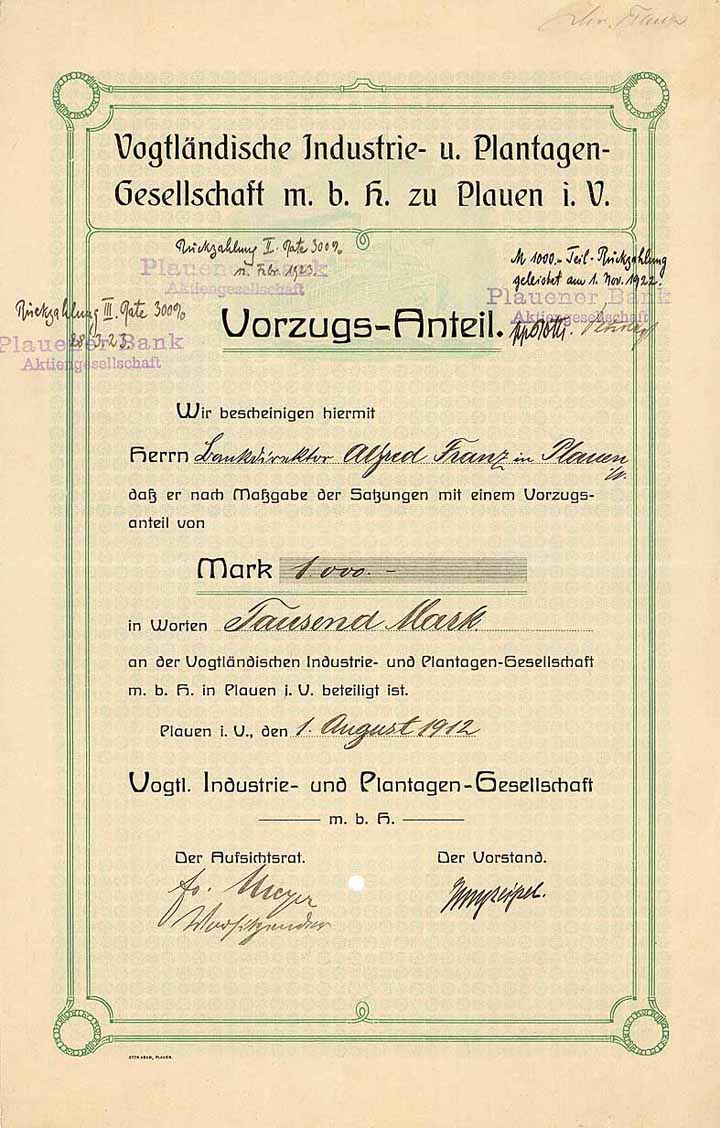 Dir. Franz
Vogtländische Industrie- u. Plantagen-
Gesellschaft m. b. H. zu Plauen i. V.
Rückzahlung II. Rate 300%
Febr. 1923
Plauener Bank
Aktiengesellschaft
M 1000.- Teil-Rückzahlung
geleistet am 1. Nov. 1922.
Plauener Bank
Aktiengesellschaft
Rückzahlung III. Rate 300%
28.3.23.
Plauener Bank
Aktiengesellschaft
Vorzugs-Anteil.
Wir bescheinigen hiermit
Herrn Bankdirektor Alfred Franz in Plauen
i/V.
daß er nach Maßgabe der Satzungen mit einem Vorzugs-
anteil von
Mark 1.000.-
in Worten Tausend Mark
an der Vogtländischen Industrie- und Plantagen-Gesellschaft
m. b. H. in Plauen i. V. beteiligt ist.
Plauen i. V., den 1. August 1912
Vogtl. Industrie- und Plantagen-Gesellschaft
m. b. H.
Der Aufsichtsrat.
Der Vorstand.
Meyer
Vorsitzender
OTTO ADAM, PLAUEN.